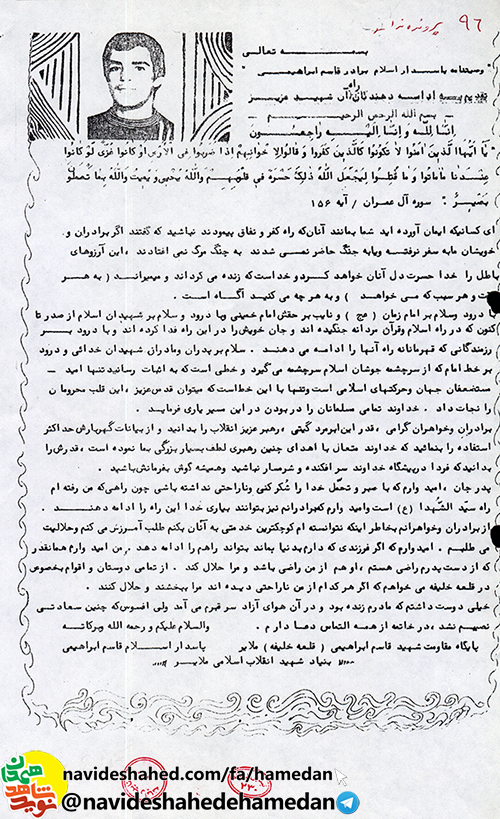 ۹۶
بسمه تعالی
"وصیتنامه پاسدار اسلام برادر قاسم ابراهیمی"
تقدیم به ادامه دهندگان راه آن شهید عزیز
بسم الله الرحمن الرحیم
اِنّا لِلّه وَ اِنّا اِلَیْهِ راجِعُون
"یا اَیُّهَا الَّذینَ آمَنُوا لا تَکُونُوا کَالَّذینَ کَفَرُوا وَ قالُوا لِاِخوانِهِم اِذا ضَرَبُوا فِی الاَرضِ اَوکانُوا غُزًّی لَوْ کانُوا
عِنْدَنا ماماتُوا وَ ما قُتِلُوا لِیَجْعَلَ اللّهُ ذلِکَ حَسْرَة فی قُلُوبِهِم وَاللّهُ یُحْیی وَ یُمیتُ وَاللّهُ بِما تَعْمَلُونَ
بَصیرٌ" سوره آل عمران / آیه ۱۵۶
ای کسانیکه ایمان آورده اید شما بمانند آنان که راه کفر و نفاق پیمودند نباشید که گفتند اگر برادران و
خویشان ما به سفر نرفته و یا به جنگ حاضر نمی شدند به چنگ مرگ نمی افتادند ، این آرزوهای
باطل را خدا حسرت دل آنان خواهد کرد و خداست که زنده می کرداند و میمیراند (به هر
ت و هر سبب که می خواهد ) و به هر چه می کنید آگاه است .
با درود وسلام بر امام زمان (عج ) و نایب بر حقش امام خمینی وبا درود و سلام بر شهیدان اسلام از صدر تا
کنون که در راه اسلام وقرآن مردانه جنگیده اند و جان خویش را در این راه فدا کرده اند و با درود بر
رزمندگانی که قهرمانانه راه آنها را ادامه می دهند . سلام بر پدران ومادران شهیدان خدائی و درود
بر خط امام که از سرچشمه جوشان اسلام سرچشمه می گیرد و خطی است که به اثبات رسانید تنها امید
مستضعفان جهان وحرکتهای اسلامی است وتنها با این خط است که میتوان قدس عزیز ، این قلب محرومان
را نجات داد . خداوند تمامی مسلمانان را در بودن در این مسیر یاری فرماید .
برادران وخواهران گرامی ، قدر این ابرمرد گیتی ، رهبر عزیز انقلاب را بدانید و از بیانات گهربارش حداکثر
استفاده را بنمائید که خداوند متعال با اهدای چنین رهبری لطف بسیار بزرگی بما نموده است ، قدرش را
بدانید که فردا در پیشگاه خداوند سرافکنده و شرمسار نباشید وهمیشه گوش بفرمانش باشید .
پدر جان ، امید وارم که با صبر و تحمّل خدا را شُکر کنی وناراحتی نداشته باشی چون راهی که من رفته ام
راه سیّد الشّهدا (ع) است وامید وارم که برادرانم نیز بتوانند بیاری خدا این راه را ادامه دهند .
از برادران وخواهرانم بخاطر اینکه نتوانسته ام کوچکترین خدمتی به آنان بکنم طلب آمرزش می کنم وحلالیت
می طلبم . امیدوارم که اگر فرزندی که دارم بدنیا بماند بتواند راهم را ادامه دهد .و من امید وارم همانقدر
که از دست پدرم راضی هستم ، او هم از من راضی باشد و مرا حلال کند . از تمامی دوستان و اقوام بخصوص
در قلعه خلیفه می خواهم که اگر هر کدام از من ناراحتی دیده اند مرا ببخشند و حلال کنند .
خیلی دوست داشتم که مادرم زنده بود و در آن هوای آزاد سر قبرم می آمد ولی افسوس که چنین سعادتی
نصیبم نشد ، در خاتمه از همه التماس دعا دارم . والسلام علیکم و رحمه الله وبرکاته
پایگاه مقاومت شهید قاسم ابراهیمی ( قلعه خلیفه ) ملایر پاسدار اسلام قاسم ابراهیمی
بنیاد شهید انقلاب اسلامی ملایر
نوید شاهد همدان
navideshahed.com/fa/hamedan
@navideshahedehamedan